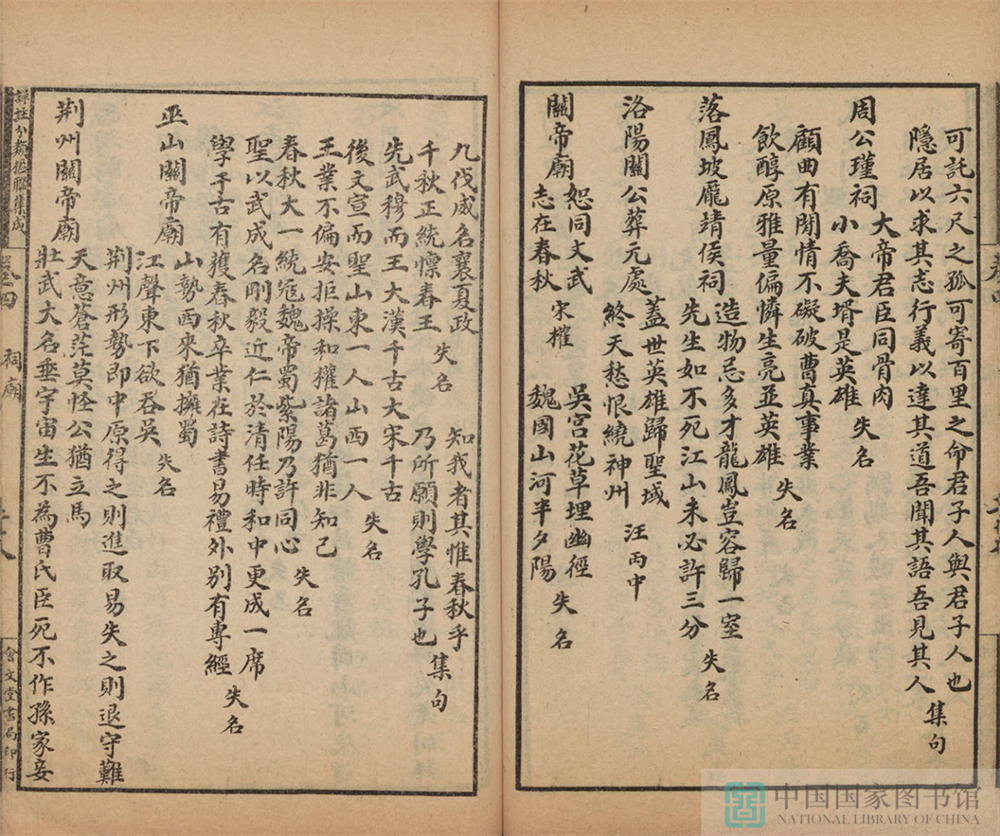 可託六尺之孤可寄百里之命君子人與君子人也
隱居以求其志行義以達其道吾聞其語吾見其人 集句
周公瑾祠 大帝君臣同骨肉
小喬夫壻是英雄 失名
顧曲有閒情不礙破曹真事業
飲醇原雅量偏憐生亮並英雄 失名
落鳳坡龐靖侯祠 造物忌多才龍鳳豈容歸一室
先生如不死江山未必許三分 失名
洛陽關公葬元處 蓋世英雄歸聖域
終天愁恨繞神州 汪丙中
關帝廟 恕同文武
志在春秋 宋權
吳宮花草埋幽徑
魏國山河半夕陽 失名
九伐威名襄夏政
千秋正統懍春王 失名
知我者其惟春秋乎
乃所願則學孔子也 集句
先武穆而王大漢千古大宋千古
後文宣而聖山東一人山西一人 失名
王業不偏安拒操和權諸葛猶非知己
春秋大一統寇魏帝蜀紫陽乃許同心 失名
聖以武成名剛毅近仁於清任時和中更成一席
學于古有獲春秋卒業在詩書易禮外別有專經 失名
巫山關帝廟 山勢西來猶擁蜀
江聲東下欲吞吳 失名
荆州關帝廟 荆州形勢即中原得之則進取易失之則退守難
天意蒼茫莫怪公猶立馬
壯武大名垂宇宙生不為曹氏臣死不作孫家妾
詳註分類楹聯集成
卷四
祠廟
會文堂書局印行
中国国家图书馆
NATIONAL LIBRARY OF CHINA